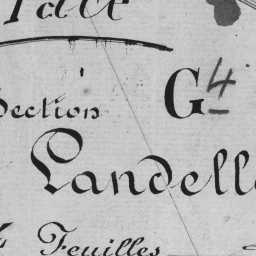 Section G4
Landell
4 Feuilles